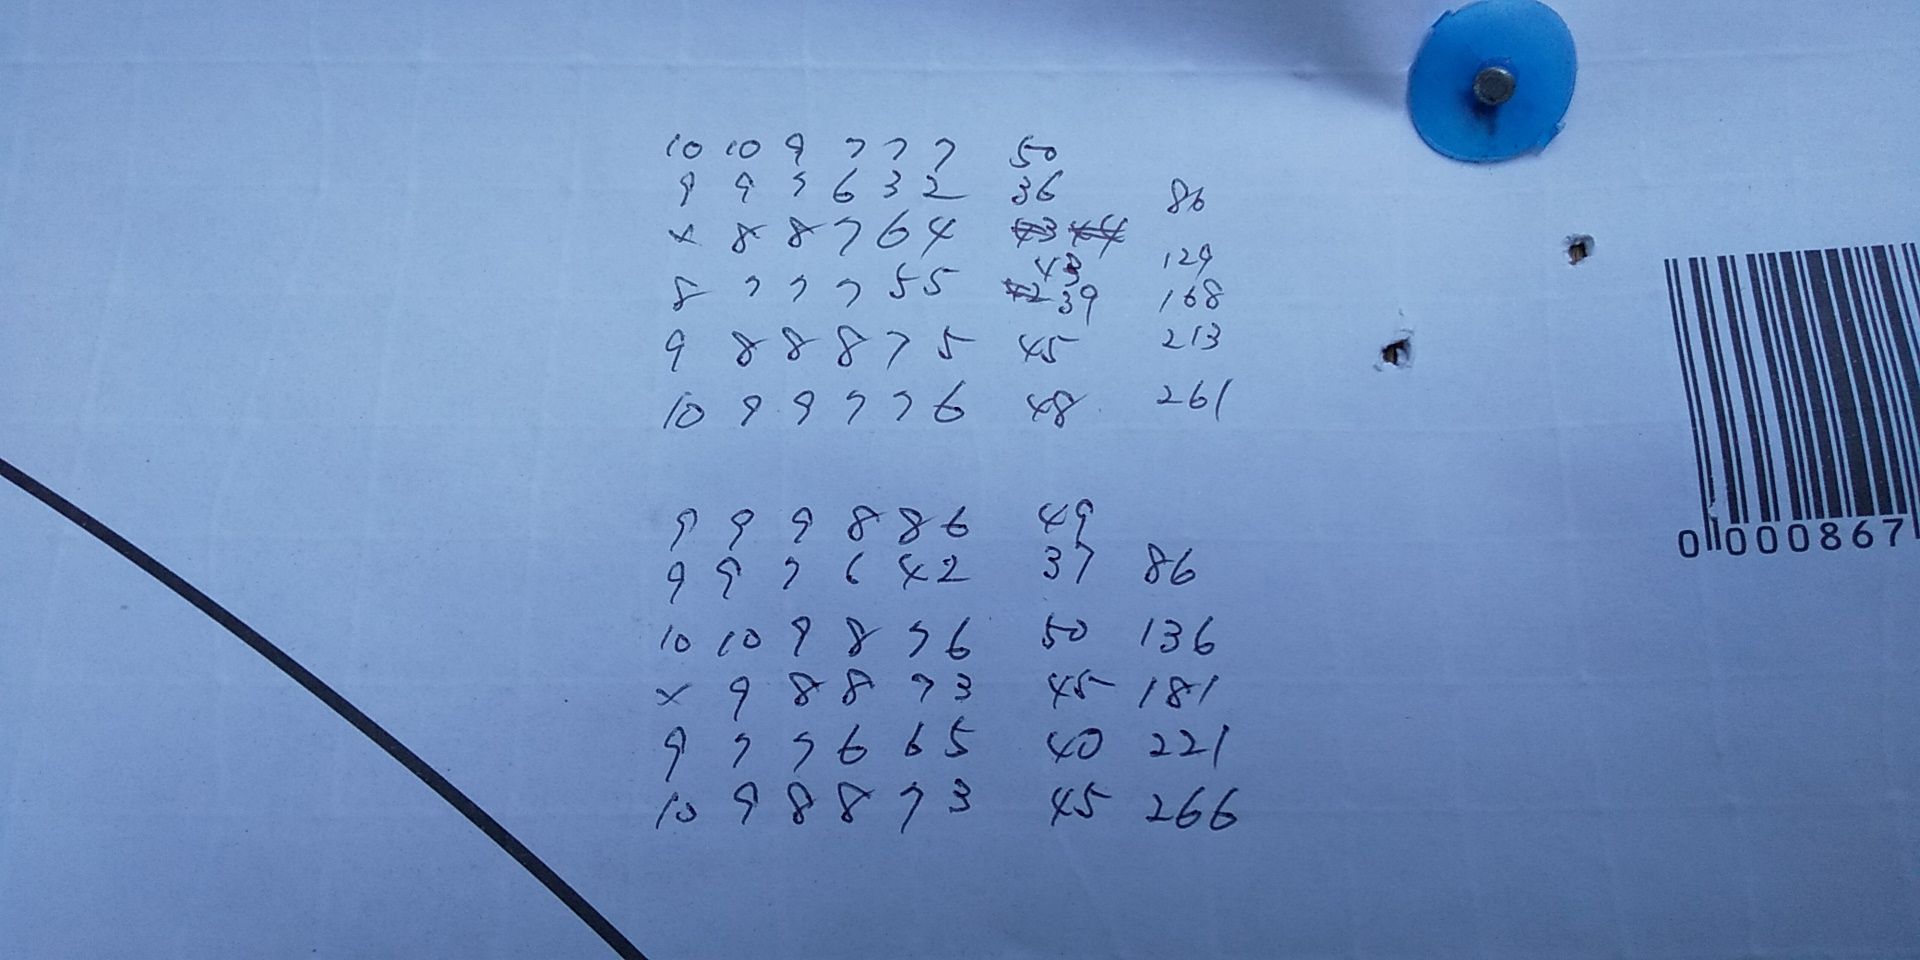 10 10 9 7 7 7 50
9 9 7 6 3 2 36 86
x 8 8 7 6 4 43 44
43 129
8 7 7 7 5 5 42 39 168
9 8 8 8 7 5 45 213
10 9 9 7 7 6 48 261
9 9 9 8 8 6 49
9 9 7 6 4 2 37 86
10 10 9 8 7 6 50 136
x 9 8 8 7 3 45 181
9 7 7 6 6 5 40 221
10 9 8 8 7 3 45 266
0 000867